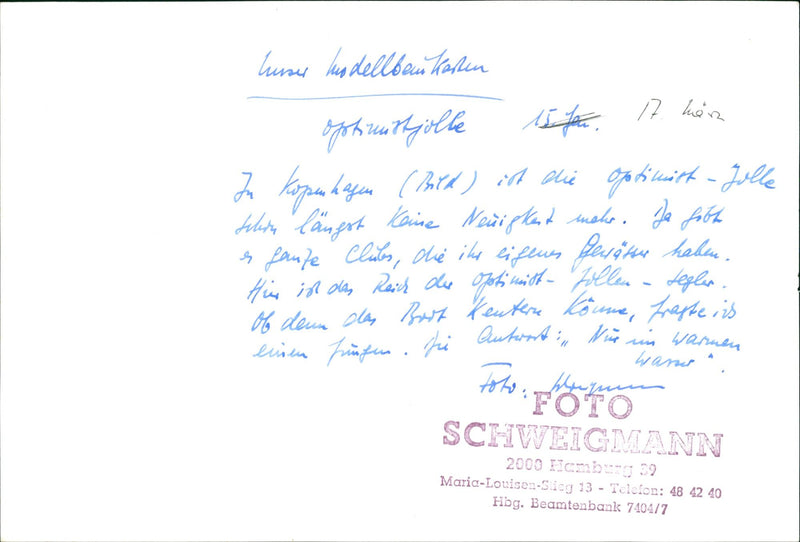 Unser Modellbaukasten
Optimistjolle 15. Jan. 17 März
In Kopenhagen (Bild) ist die Optimist-Jolle
schon längst keine Neuigkeit mehr. Da gibt
es ganze Clubs, die ihr eigenes Gewässer haben.
Hier ist das Reich der Optimist-Jollen-Segler.
Ob denn das Boot kentern könne, fragte ich
einen Jungen. Die Antwort: „Nur im warmen
Wasser".
Foto:
FOTO
SCHWEIGMANN
2000 Hamburg 39
Maria-Louisen-Stieg 13 - Telefon: 48 42 40
Hbg. Beamtenbank 7404/7